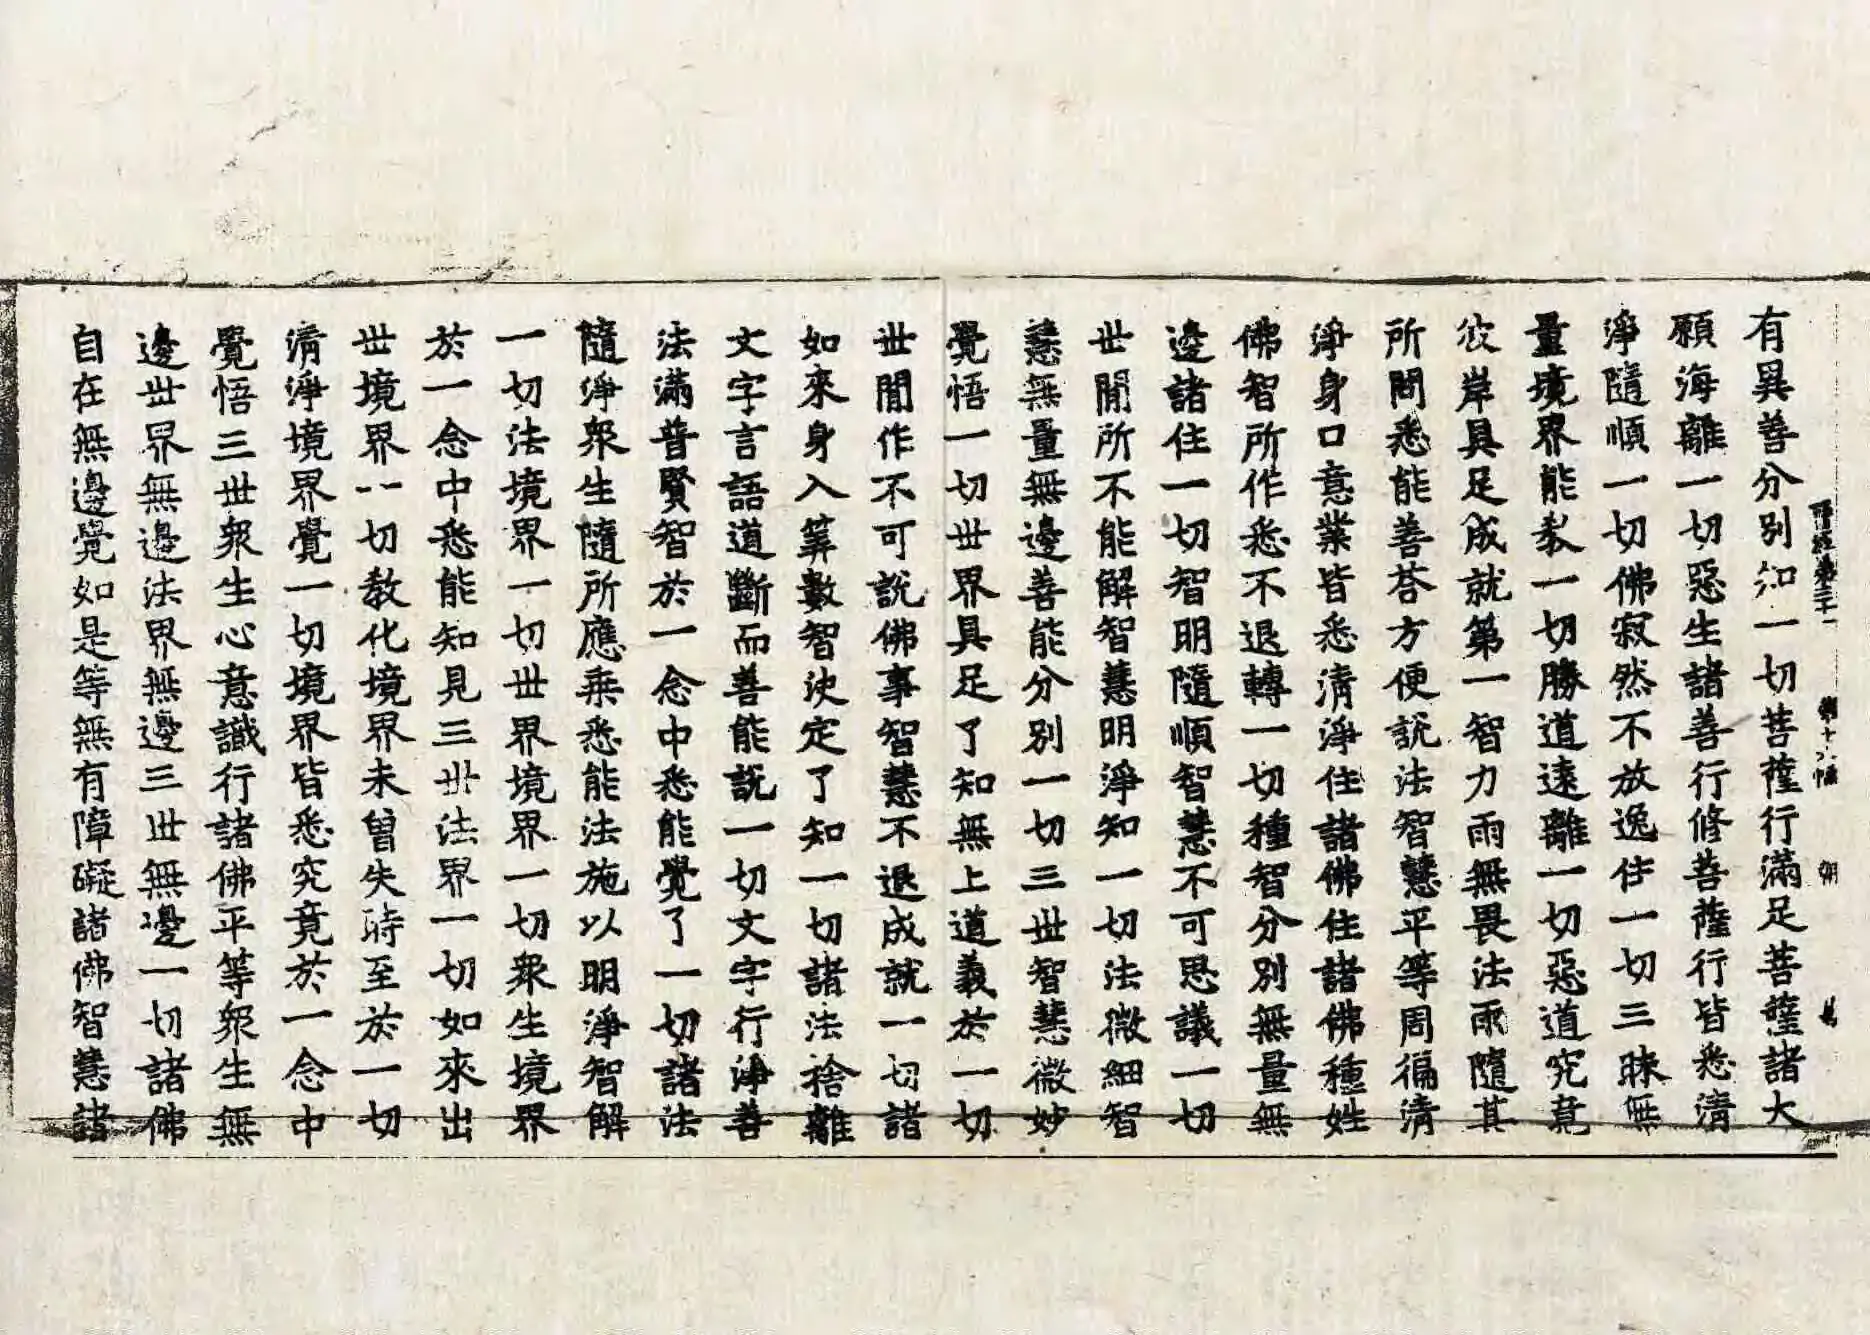 晉經卷三十一 第十六幅 朝
有異善分別知一切菩薩行滿足菩薩諸大
願海離一切惡生諸善行修菩薩行皆悉清
淨隨順一切佛寂然不放逸住一切三昧無
量境界能教一切勝道遠離一切惡道究竟
彼岸具足成就第一智力雨無畏法雨隨其
所問悉能善荅方便說法智慧平等周徧清
淨身口意業皆悉清淨住諸佛住諸佛種姓
佛智所作悉不退轉一切種智分別無量無
邊諸住一切智明隨順智慧不可思議一切
世間所不能解智慧明淨知一切法微細智
慧無量無邊善能分別一切三世智慧微妙
覺悟一切世界具足了知無上道義於一切
世間作不可說佛事智慧不退成就一切諸
如來身入筭數智決定了知一切諸法捨離
文字言語道斷而善能說一切文字行淨善
法滿普賢智於一念中悉能覺了一切諸法
隨淨衆生隨所應乘悉能法施以明淨智解
一切法境界一切世界境界一切衆生境界
於一念中悉能知見三世法界一切如來出
世境界一切教化境界未曾失時至於一切
清淨境界覺一切境界皆悉究竟於一念中
覺悟三世衆生心意識行諸佛平等衆生無
邊世界無邊法界無邊三世無邊一切諸佛
自在無邊覺如是等無有障礙諸佛智慧諸